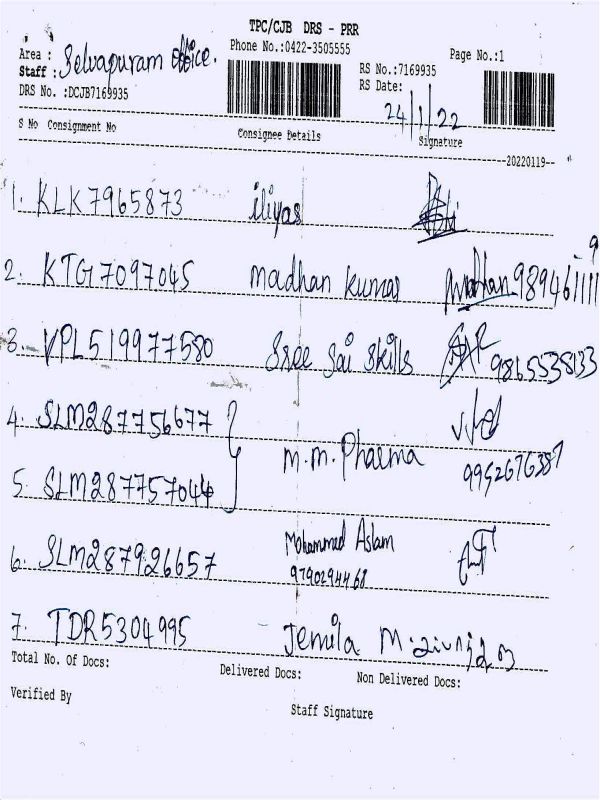 TPC/CJB DRS - PRR
Area : Selvapuram office.
Phone No.:0422-3505555
Page No.:1
Staff :
RS No.:7169935
DRS No. :DCJB7169935
RS Date:
24/1/22
S No Consignment No
Consignee Details
Signature
20220119
1. KLK7965873 iliyas
2. KTG7097045 madhan kumar
3. VPL519977580 Sree Sai Skills 9865538133
4. SLM287756677
M.M. Pharma 9952676387
5. SLM287757044
Mohammed Aslam
6. SLM287926657
9790294468
7. TDR5304995 Jemila M.
Total No. Of Docs:
Delivered Docs:
Non Delivered Docs:
Verified By
Staff Signature